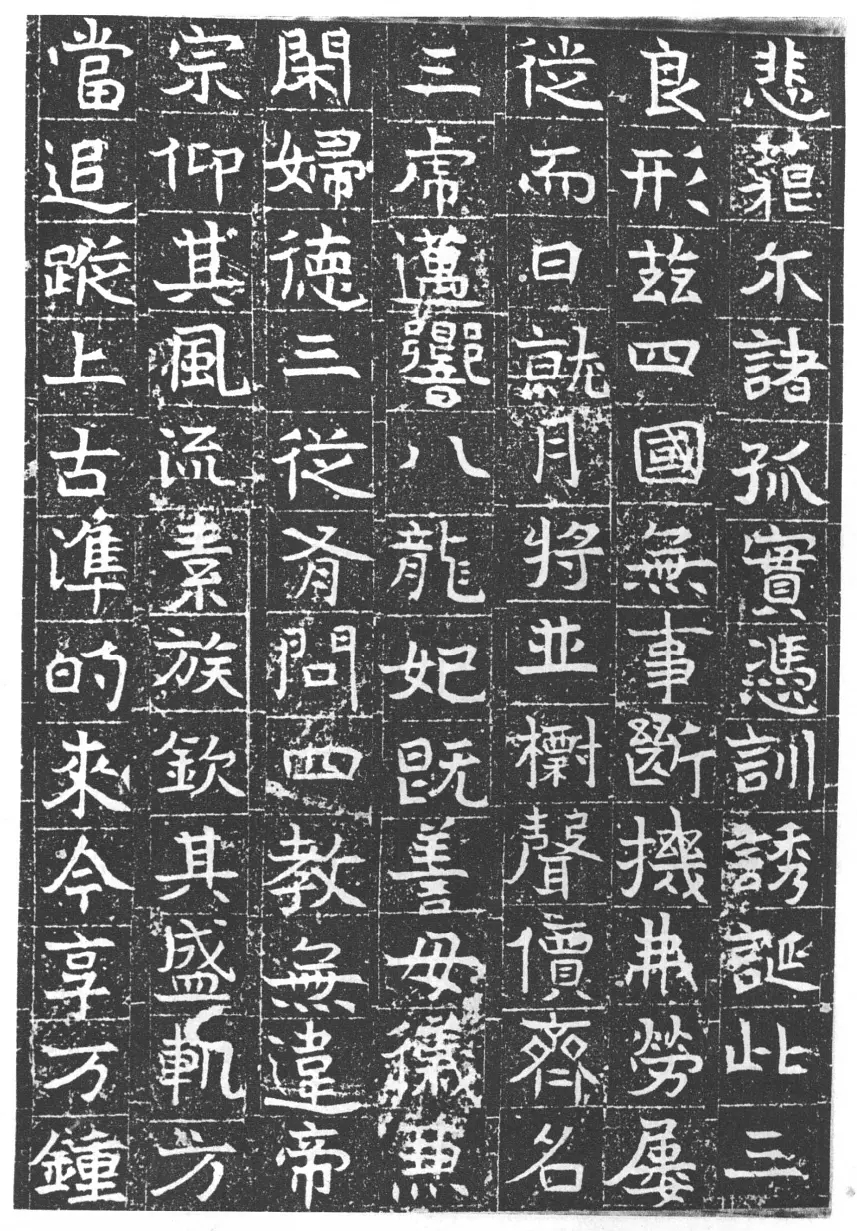 悲藐尒諸孤實憑訓誘誕此三
良形兹四國無事斷機弗勞屢
從而日就月將並檦聲價齊名
三虎邁響八龍妃旣善母儀兼
閑婦德三從肴問四教無違帝
宗仰其風流素族欽其盛軌方
當追蹤上古準的來今享万鍾